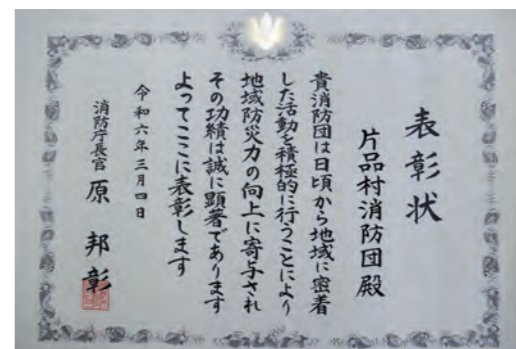 表彰状
片品村消防団殿
貴消防団は日頃から地域に密着
した活動を積極的に行うことにより
地域防災力の向上に寄与され
その功績は誠に顕著であります
よってここに表彰します
令和六年三月四日
消防庁長官 原 邦彰